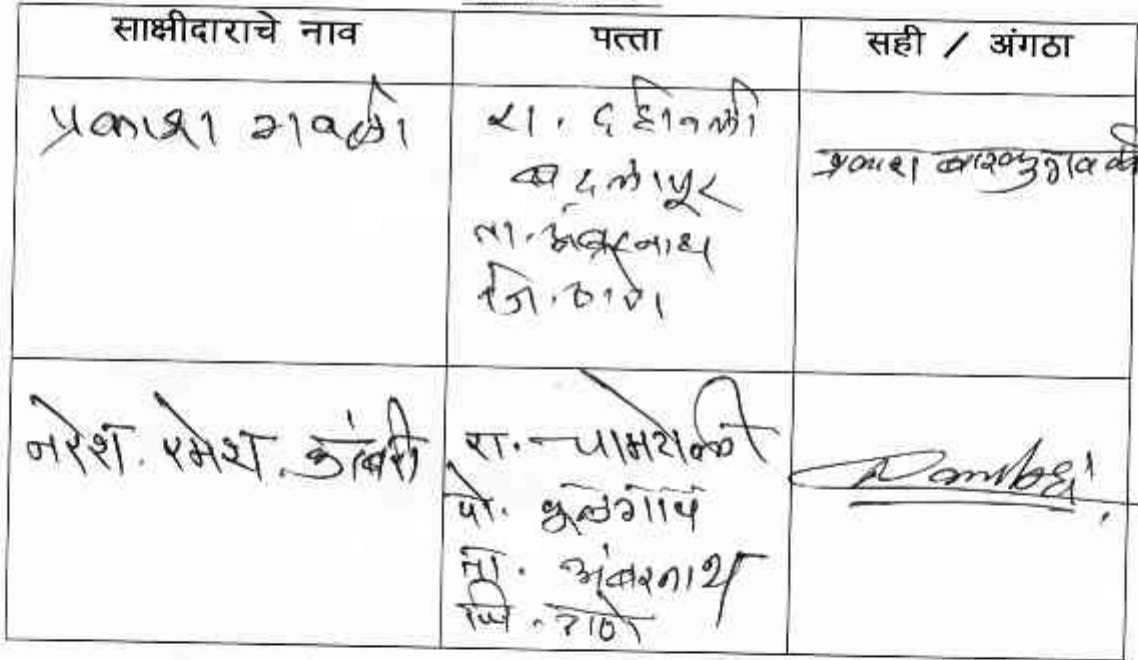 साक्षीदाराचे नाव पत्ता सही / अंगठा
प्रकाश गवळी
रा. दहीवली
बदलापूर
ता. अंबरनाथ
जि. ठाणे
प्रकाश गवळी
नरेश. रमेश.
रा. चामटोली
पो. कुळगाव
ता. अंबरनाथ
जि. ठाणे